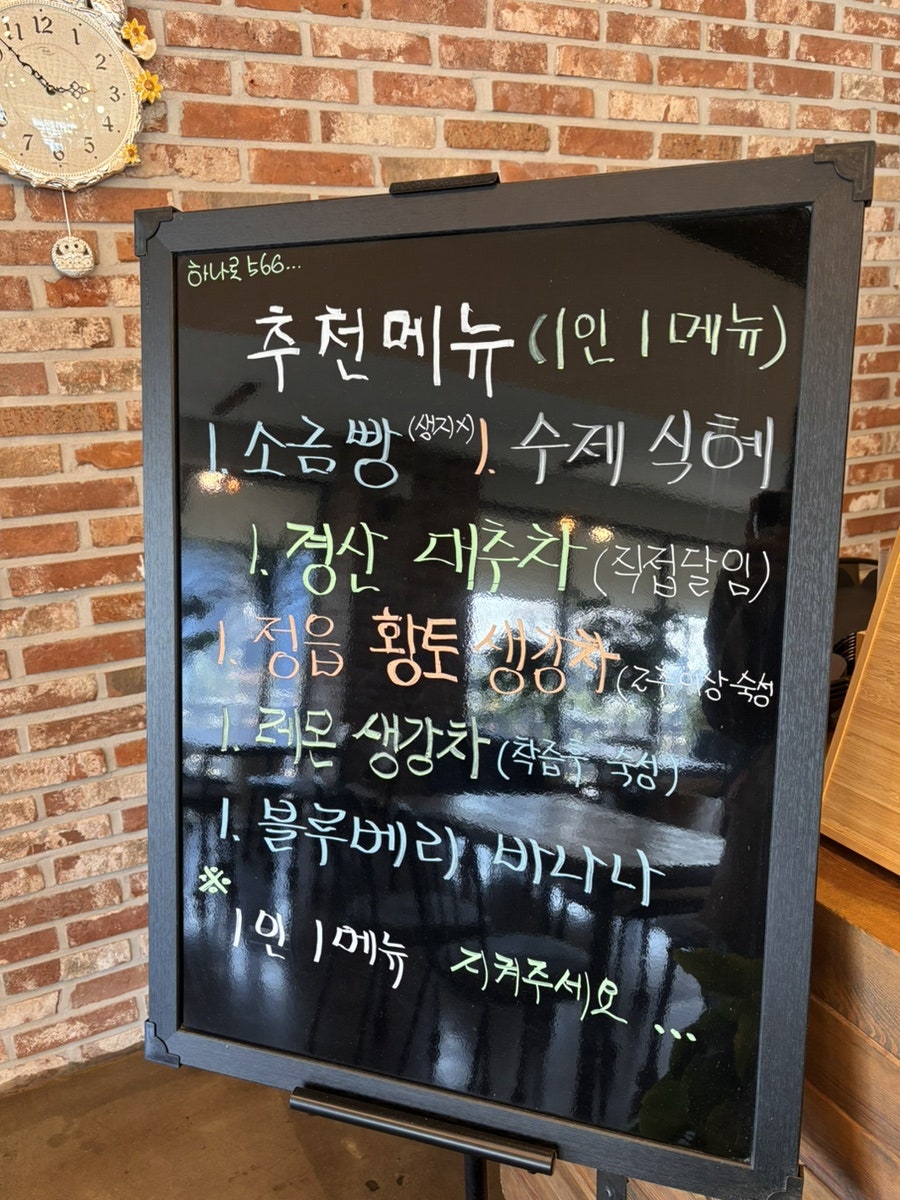 12
1
2
3
4
5
6
7
하나로 566...
추천메뉴 (1인 1메뉴)
1. 소금빵 (생지X) 1. 수제 식혜
1. 경산 대추차 (직접달임)
1. 정읍 황토 생강차 (2주이상 숙성
1. 레몬 생강차 (착즙후 숙성)
1. 블루베리 바나나
※
1인 1메뉴 지켜주세요...